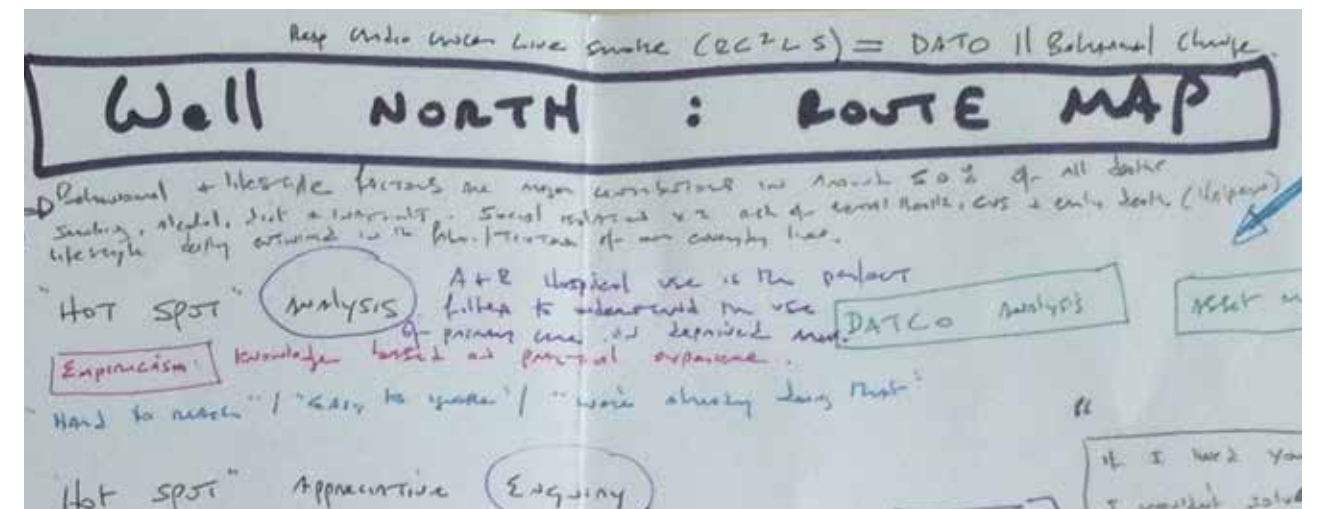 Resp Cardio Cancer Liver Smoke (RC²LS) = DATO || Behavioural Change
Well NORTH : ROUTE MAP
Behavioural + lifestyle factors are major contributions in around 50% of all deaths
Smoking, alcohol, diet + . Social isolation x2 of mental health, CVS + early death
lifestyle deeply entwined in the of our everyday lives.
"HOT SPOT" ANALYSIS
A+E Hospital use is the perfect
filter to understand the use
of primary care in deprived areas.
DATCo Analysis
ASSET
Empiricism: Knowledge based on practical experience.
"Hard to reach" / "Easy to ignore" / "We're already doing that"
"Hot SPOT" Appreciative Enquiry
"
If I had you
I wouldn't solve